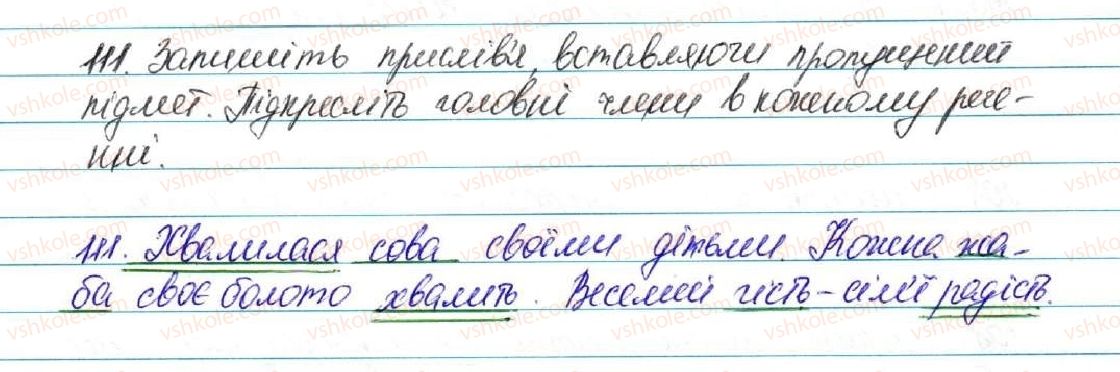 111. Запишіть прислів'я, вставляючи пропущений
підмет. Підкресліть головні члени в кожному рече-
нні.
111. Хвалилася сова своїми дітьми. Кожна жа-
ба своє болото хвалить. Веселий гість – сім'ї радість.